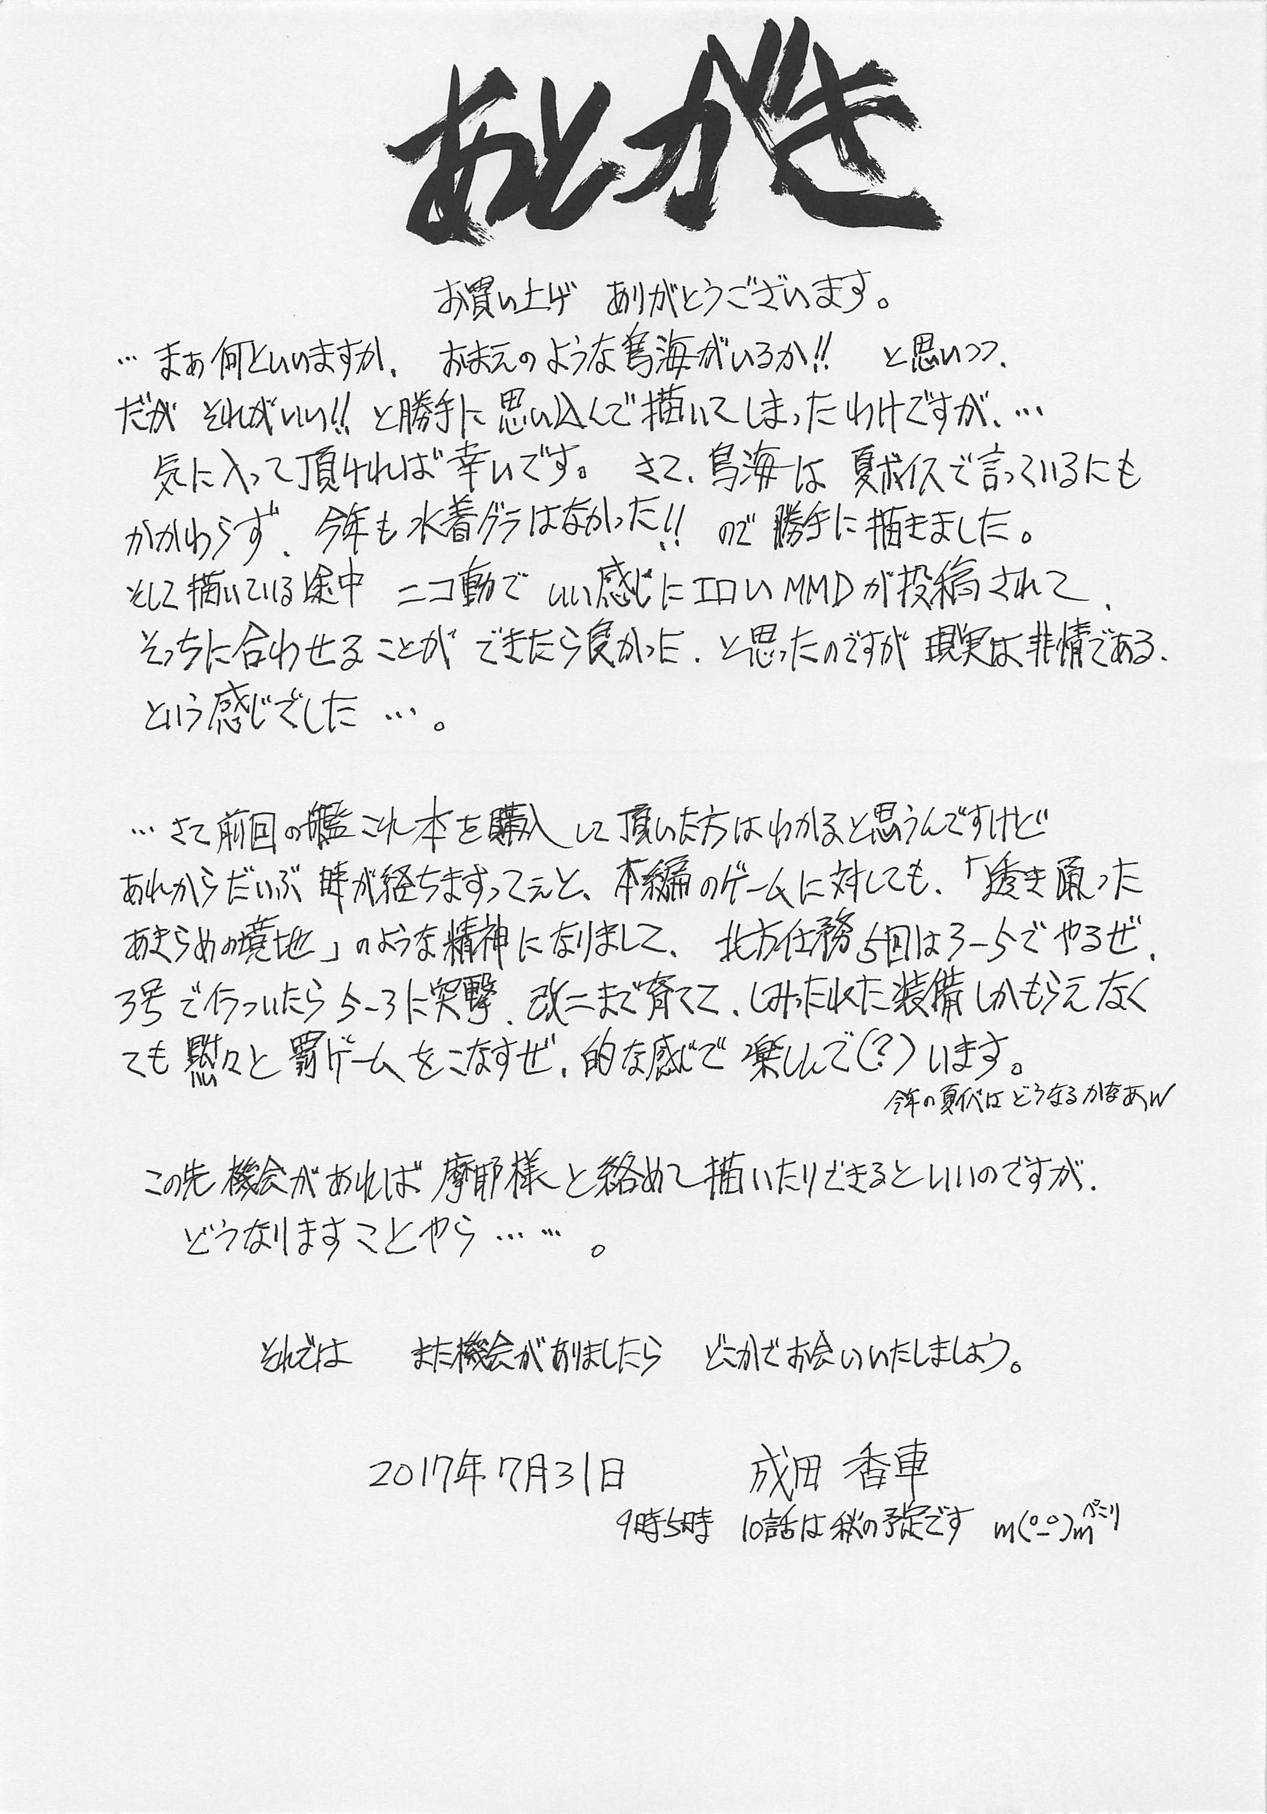 あとがき
お買い上げ ありがとうございます。
… まぁ何といいますか、 おまえのような鳥海がいるか!! と思いつつ、
だが それがいい!! と勝手に思い込んで描いてしまったわけですが、…
気に入って頂ければ幸いです。 さて、鳥海は 夏ボイスで言っているにも
かかわらず、今年も水着グラはなかった!! ので 勝手に描きました。
そして描いている途中 ニコ動で いい感じにエロいMMDが投稿されて、
そっちに合わせることが できたら良かった、と思ったのですが 現実は非情である、
という感じでした …。
… さて前回の艦これ本を購入して頂いた方はわかると思うんですけど
あれからだいぶ時が経ちますってぇと、本編のゲームに対しても、「透き通った
あきらめの境地」のような精神になりまして、 北方任務5回は3-5でやるぜ、
3号でイラついたら5-3に突撃、改二まで育てて、しみったれた装備しかもらえなく
ても黙々と罰ゲームをこなすぜ、的な感じで楽しんで(?)います。
今年の夏イベはどうなるかなぁw
この先 機会があれば 摩耶様と絡めて描いたりできるといいのですが、
どうなりますことやら……。
それでは また機会がありましたら どこかでお会いいたしましょう。
2017年7月31日 成田 香車
9時5時 10話は秋の予定です m(°_°)m ペこり